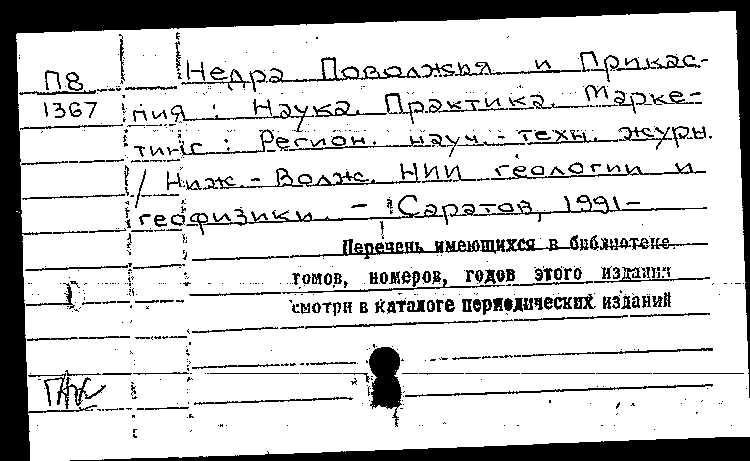 П8
1367
Недра Поволжья и Прикас-
пия : Наука. Практика. Марке-
тинг : Регион. науч.-техн. журн.
/ Ниж.-Волж. НИИ геологии и
геофизики. - Саратов, 1991-
Перечень имеющихся в библиотеке
томов, номеров, годов этого издания
смотри в каталоге периодических изданий